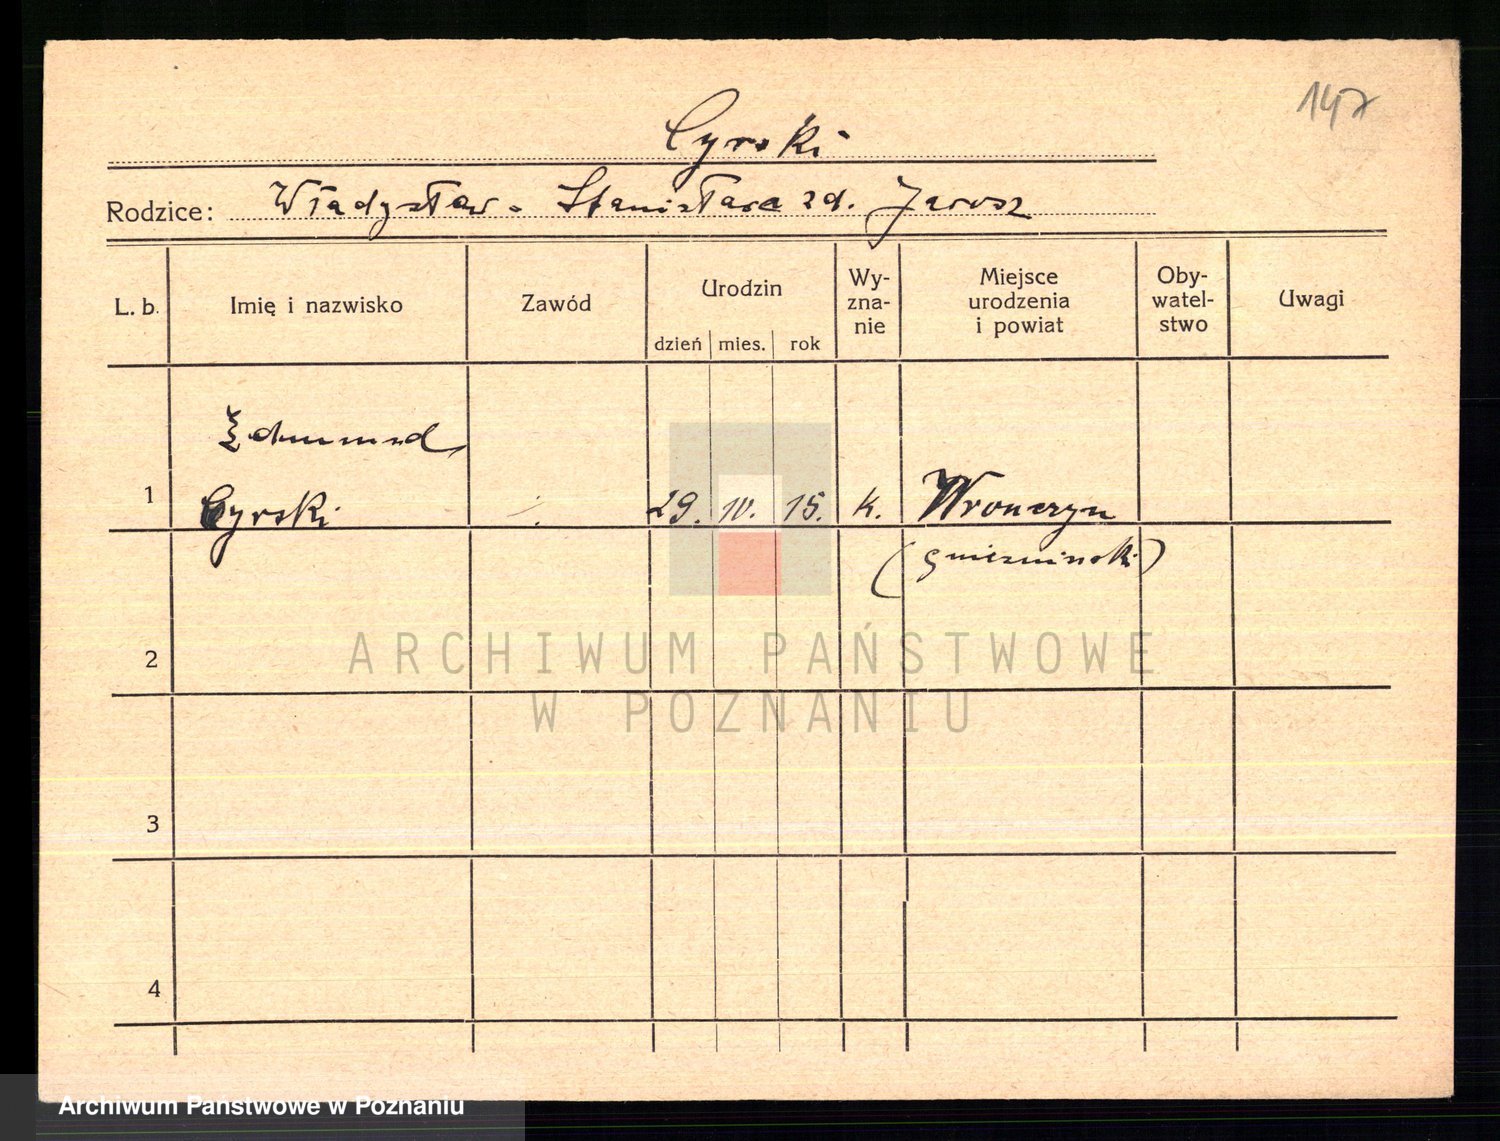 147
Cyrski
Rodzice: Władysław - Stanisława zd. Jarosz
L. b. Imię i nazwisko Zawód Urodzin Wy-zna-nie Miejsce urodzenia i powiat Oby-watel-stwo Uwagi
dzień mies. rok
Edmund
1 Cyrski 29. 10. 15. k. Wronczyn
(gnieźnieński)
2
ARCHIWUM PAŃSTWOWE
W POZNANIU
3
4
Archiwum Państwowe w Poznaniu